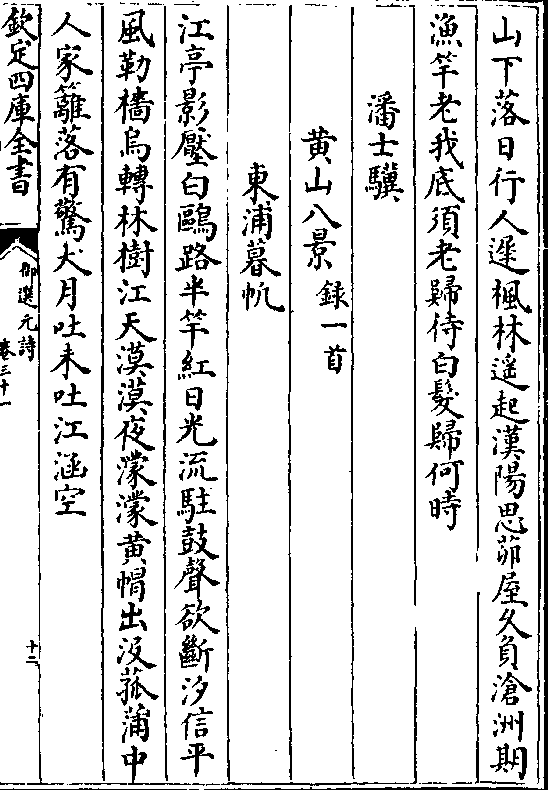 山下落日行人遲楓林遥起漢陽思茆屋久負滄洲期
漁竿老我底須老歸待白髮歸何時
潘士驥
黄山八景録一首
東浦暮帆
江亭影壓白鷗路半竿紅日光流駐鼓聲欲斷汐信平
風勒檣烏轉林樹江天漠漠夜濛濛黄帽出没菰蒲中
人家籬落有驚犬月吐未吐江涵空
欽定四庫全書
御選元詩
卷三十一
十二